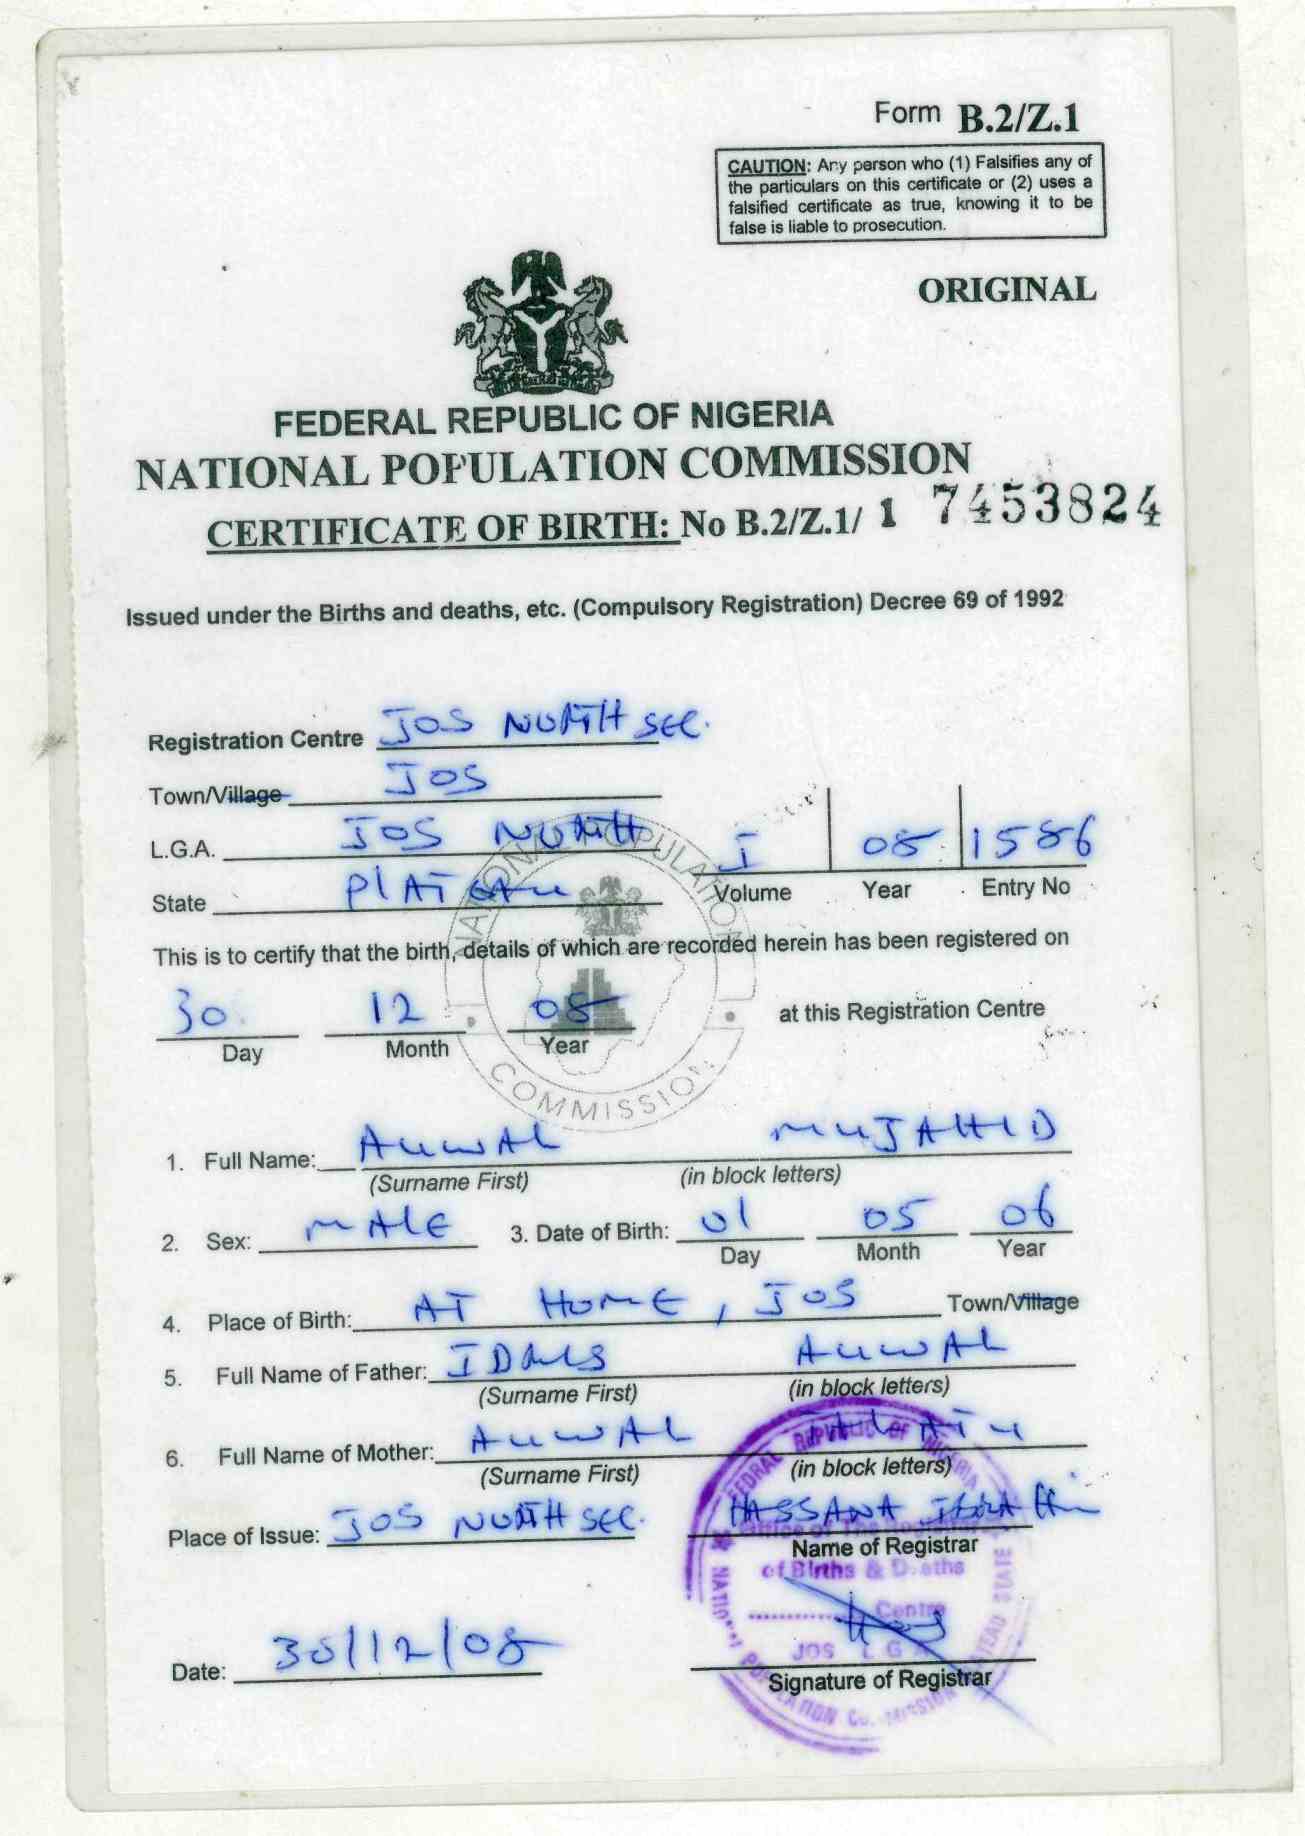 Form B.2/Z.1
CAUTION: Any person who (1) Falsifies any of
the particulars on this certificate or (2) uses a
falsified certificate as true, knowing it to be
false is liable to prosecution.
ORIGINAL
FEDERAL REPUBLIC OF NIGERIA
NATIONAL POPULATION COMMISSION
CERTIFICATE OF BIRTH: No B.2/Z.1/ 1 7453824
Issued under the Births and deaths, etc. (Compulsory Registration) Decree 69 of 1992
Registration Centre JOS NORTH SEC.
Town/Village JOS
L.G.A. JOS NORTH I 08 1586
State PLATEAU Volume Year Entry No
NATIONAL POPULATION COMMISSION
This is to certify that the birth, details of which are recorded herein has been registered on
30 12 08 at this Registration Centre
Day Month Year
1. Full Name: AUWAL MUJAHID
(Surname First) (in block letters)
2. Sex: MALE 3. Date of Birth: 01 05 06
Day Month Year
4. Place of Birth: AT HOME, JOS Town/Village
5. Full Name of Father: IDRIS AUWAL
(Surname First) (in block letters)
6. Full Name of Mother: AUWAL TALATU
(Surname First) (in block letters)
Place of Issue: JOS NORTH SEC. HASSANA IBRAHIM
Name of Registrar
FEDERAL REPUBLIC OF NIGERIA
of Births & Deaths
Centre
JOS L G
NATIONAL POPULATION COMMISSION STATE
Date: 30/12/08
Signature of Registrar